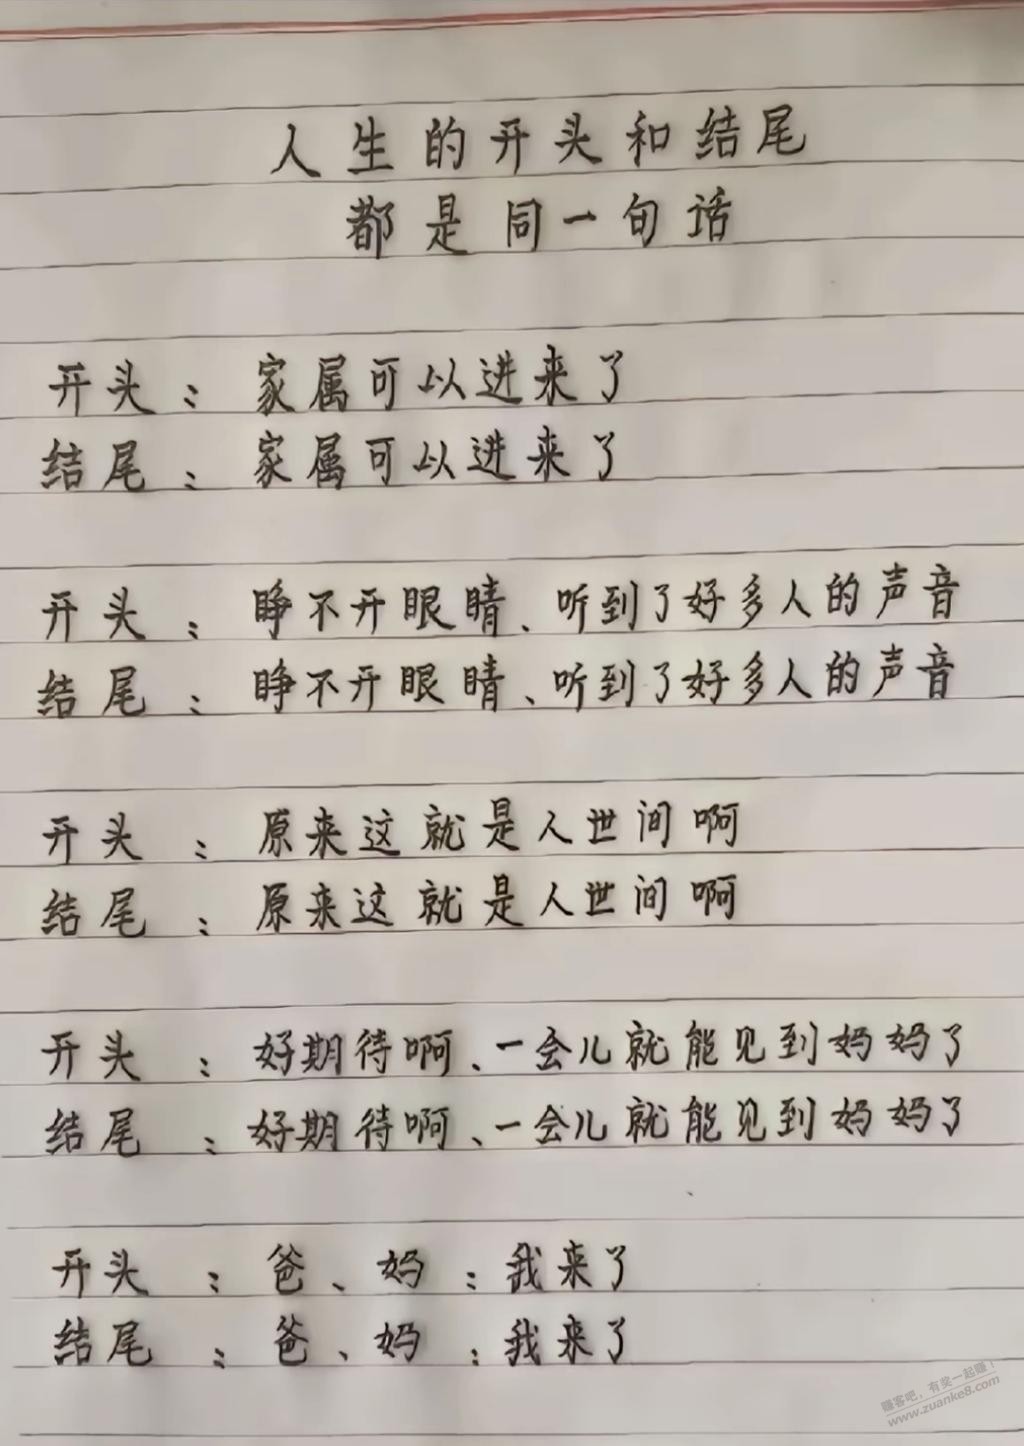 人生的开头和结尾
都是同一句话
开头：家属可以进来了
结尾：家属可以进来了
开头：睁不开眼睛、听到了好多人的声音
结尾：睁不开眼睛、听到了好多人的声音
开头：原来这就是人世间啊
结尾：原来这就是人世间啊
开头：好期待啊、一会儿就能见到妈妈了
结尾：好期待啊、一会儿就能见到妈妈了
开头：爸、妈：我来了
结尾：爸、妈：我来了
赚客吧，有奖一起赚！
www.zuanke8.com